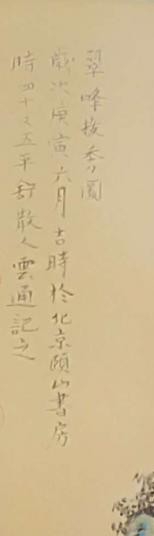 翠峰挺秀圖
歲次庚寅六月吉時於北京頤山書房
時四十又五平舒散人雲通記之